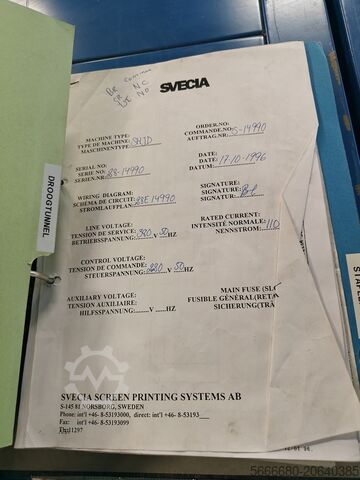 SVECIA
MACHINE TYPE:
TYPE DE MACHINE: SHJD
MASCHINENTYPE
ORDER.NO:
COMMANDE.NO: S-14990
AUFTRAG.NR:
SERIAL.NO:
SERIE NO: 28-14990
SERIEN.NR:
DATE:
DATE: 17-10-1996
DATUM:
WIRING DIAGRAM:
SCHÉMA DE CIRCUIT: 14990
STROMLAUFPLAN
SIGNATURE:
SIGNATURE:
SIGNATURE:
LINE VOLTAGE:
TENSION DE SERVICE: 380 V 50 HZ
BETRIEBSSPANNUNG:
RATED CURRENT:
INTENSITÉ NORMALE: 110
NENNSTROM:
CONTROL VOLTAGE:
TENSION DE COMMANDE: 220 V 50 HZ
STEUERSPANNUNG:
AUXILIARY VOLTAGE:
TENSION AUXILIAIRE:
HILFSSPANNUNG:.......V .....HZ
MAIN FUSE (SL
FUSIBLE GÉNÉRAL(RETA
SICHERUNG(TRÄ
SVECIA SCREEN PRINTING SYSTEMS AB
S-145 81 NORSBORG, SWEDEN
Phone: int'l +46- 8-53193000, direct: int'l +46- 8-53193
Fax: int'l +46- 8-53193099
DROOGTUNNEL
5666680-20640385